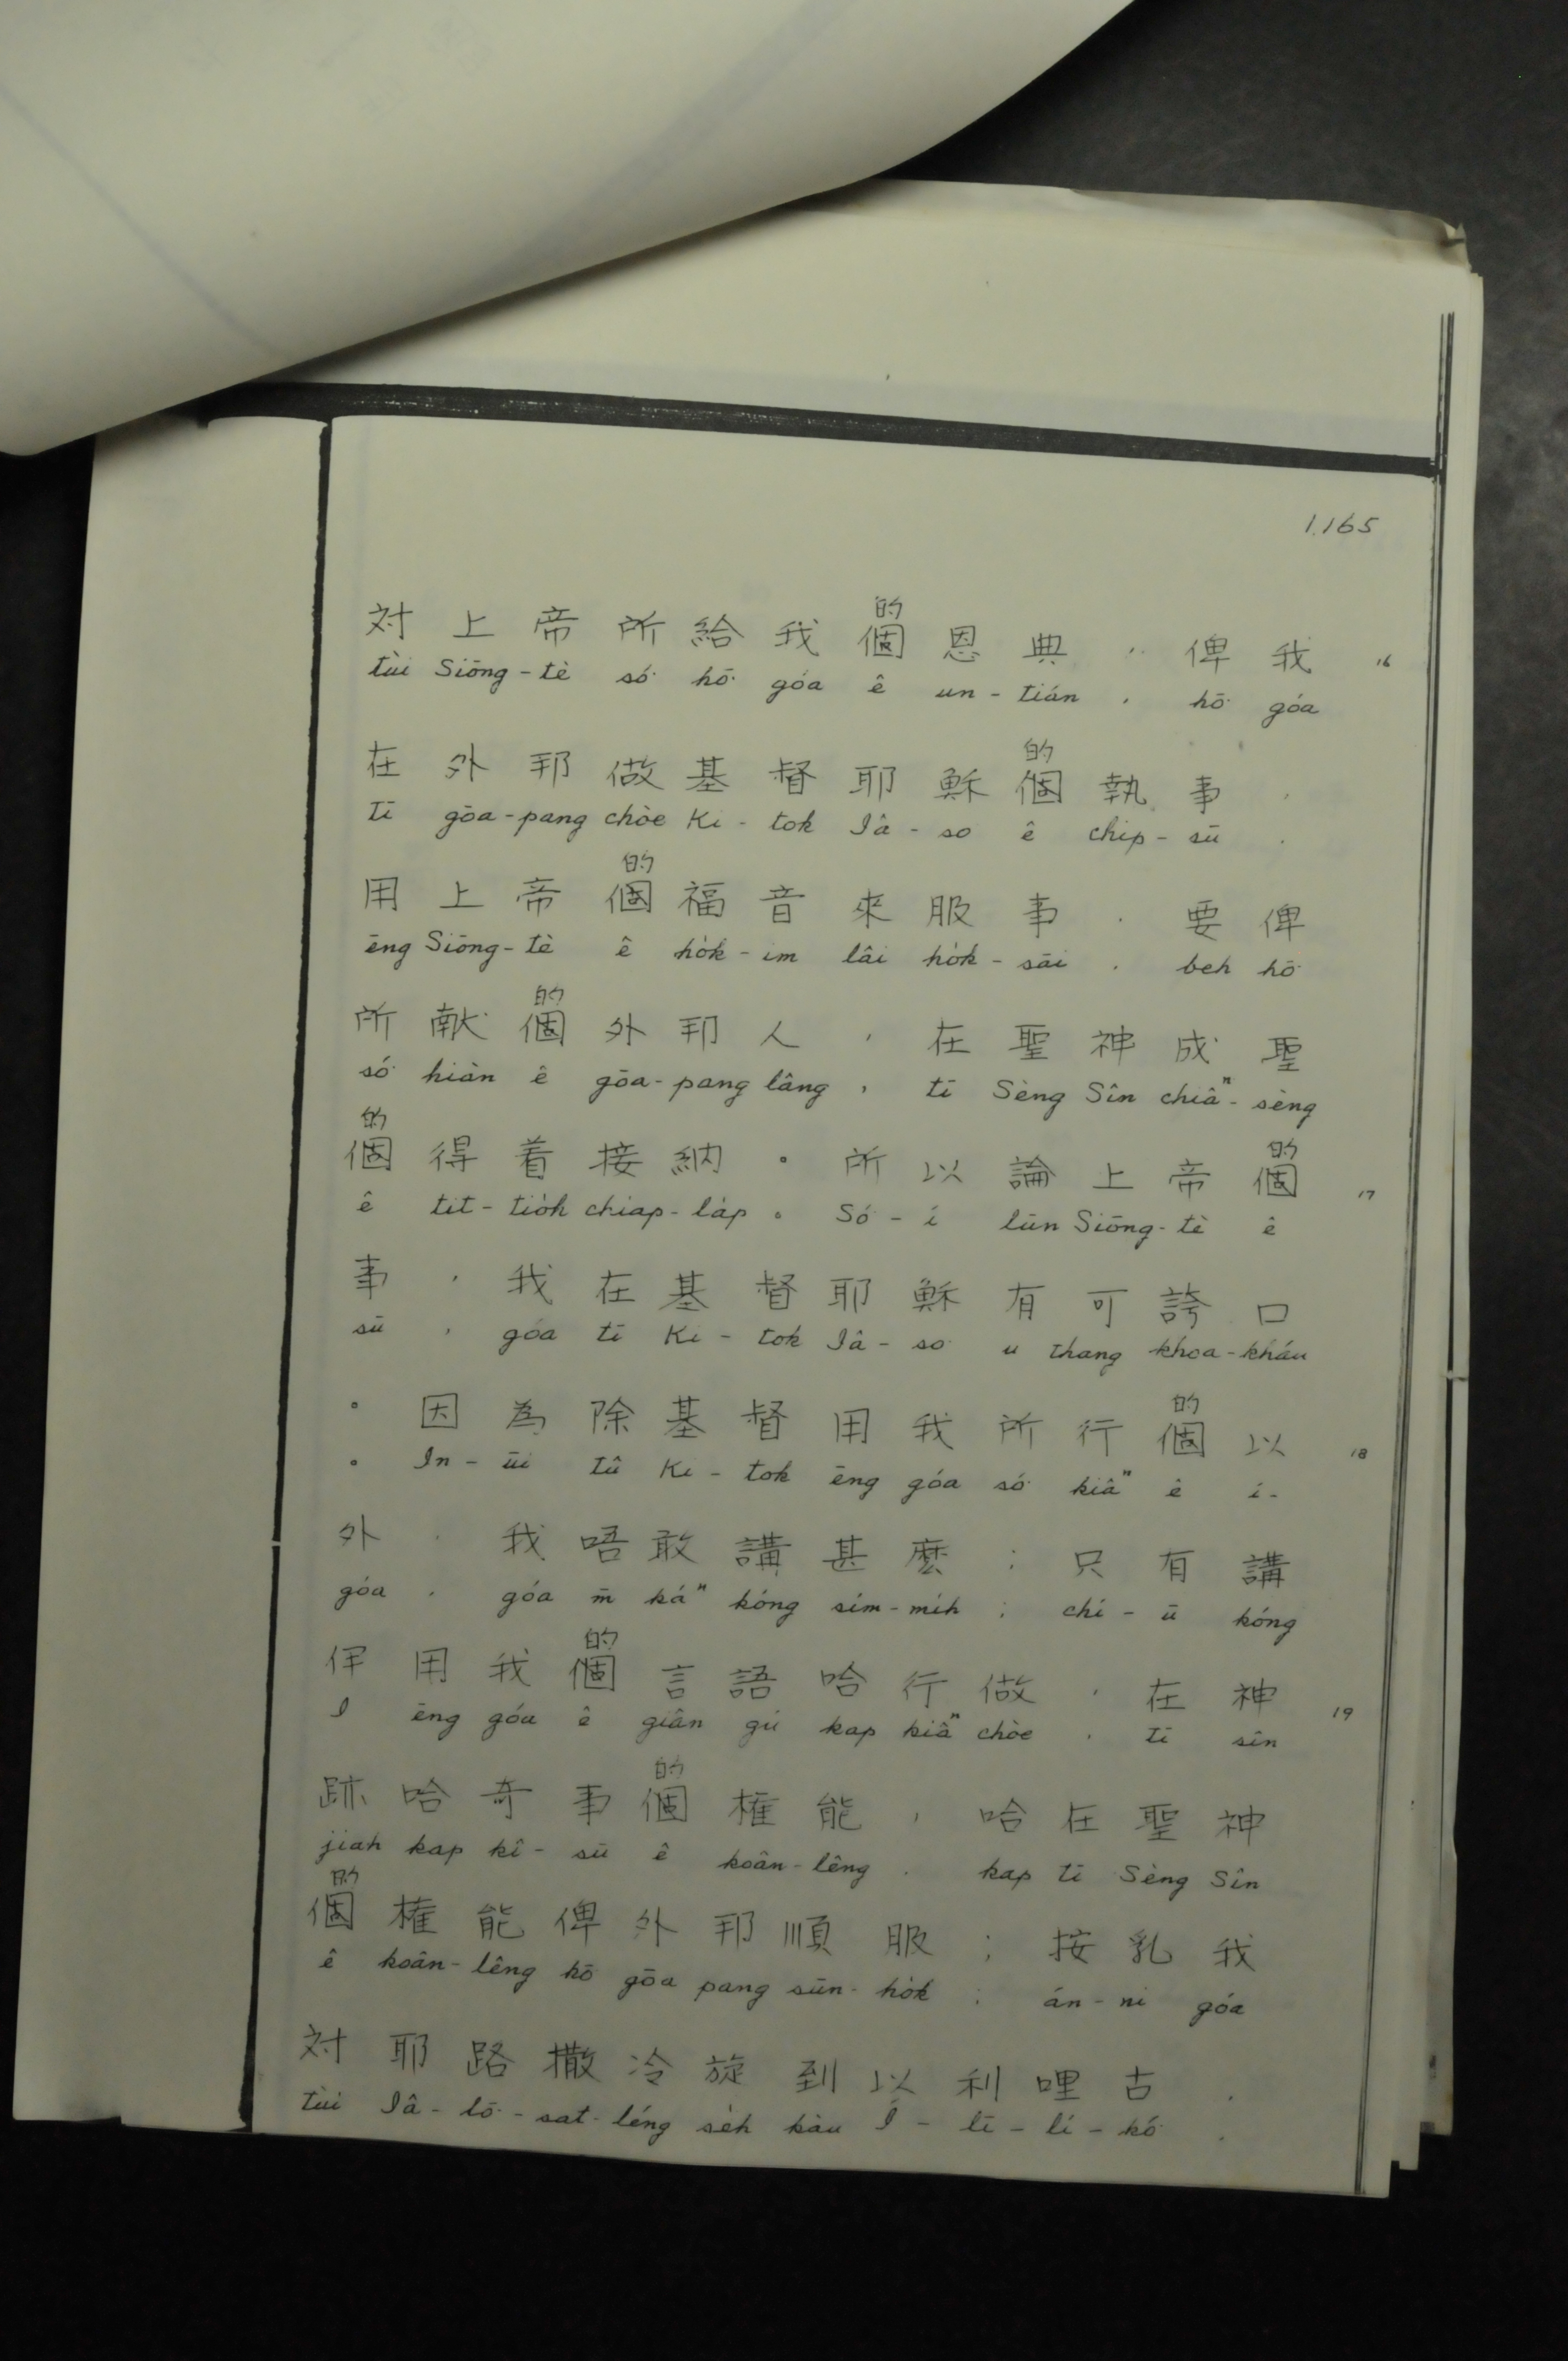 1165
的
対上帝所給我個恩典，俾我 16
tùi Siōng-tè só͘ hō͘ góa ê un-tián, hō͘ góa
的
在外邦做基督耶穌個執事，
tī gōa-pang chòe Ki-tok Iâ-so ê chip-sū,
的
用上帝個福音來服事，要俾
ēng Siōng-tè ê hok-im lâi ho̍k-sāi, beh hō͘
的
所献個外邦人，在聖神成聖
só͘ hiàn ê gōa-pang lâng, tī Sèng Sîn chiâⁿ-sèng
的 的
個得着接納。所以論上帝個 17
ê tit-tio̍h chiap-la̍p。Só͘-í lūn Siōng-tè ê
事，我在基督耶穌有可誇口
sū, góa tī Ki-tok Iâ-so͘ u thang khoa-kháu
的
。因為除基督用我所行個以 18
。In-ūi tû Ki-tok ēng góa só͘ kiâⁿ ê í-
外，我唔敢講甚麼；只有講
góa, góa m̄ káⁿ kóng sím-mih; chí-ū kóng
的
伊用我個言語哈行做，在神 19
I ēng góa ê giân gú kap kiâⁿ chòe, tī sîn
的
跡哈奇事個權能，哈在聖神
jiah kap kî-sū ê koân-lêng, kap tī Sèng Sîn
的
個權能俾外邦順服；按乳我
ê koân-lêng hō gōa pang sūn-ho̍k; án-ni góa
対耶路撒冷旋到以利哩古，
tùi Iâ-lō͘-sat-léng se̍h kàu Í-lī-lí-kó͘,